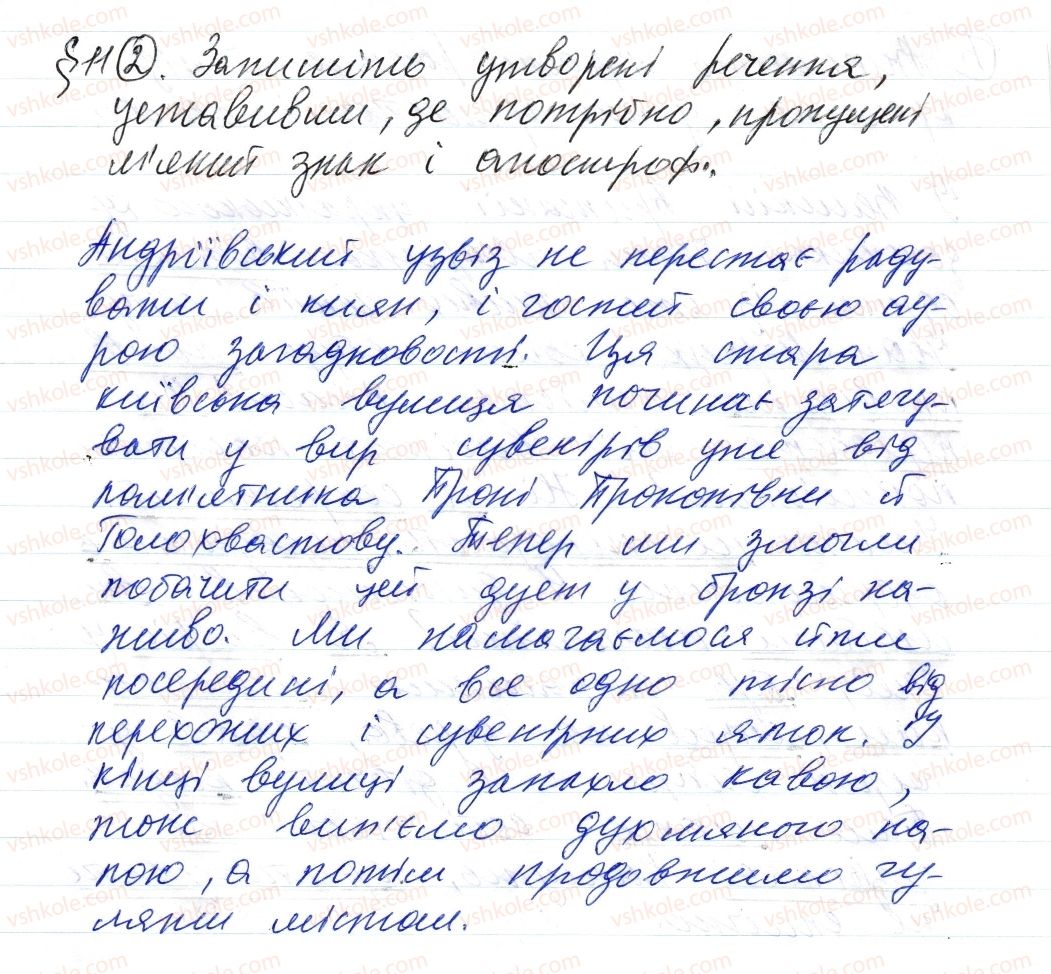 § 11 (2). Запишіть утворені речення,
уставивши, де потрібно, пропущені
м'який знак і апостроф.
Андріївський узвіз не перестає раду-
вати і киян, і гостей своєю ау-
рою загадковості. Ця стара
київська вулиця починає затягу-
вати у вир сувенірів уже від
пам'ятника Проні Прокопівни й
Голохвастову. Тепер ми змогли
побачити цей дует у бронзі на-
живо. Ми намагаємося йти
посередині, а все одно тісно від
перехожих і сувенірних яток. У
кінці вулиці запахло кавою,
тож вип'ємо духмяного на-
пою, а потім продовжимо гу-
ляти містом.